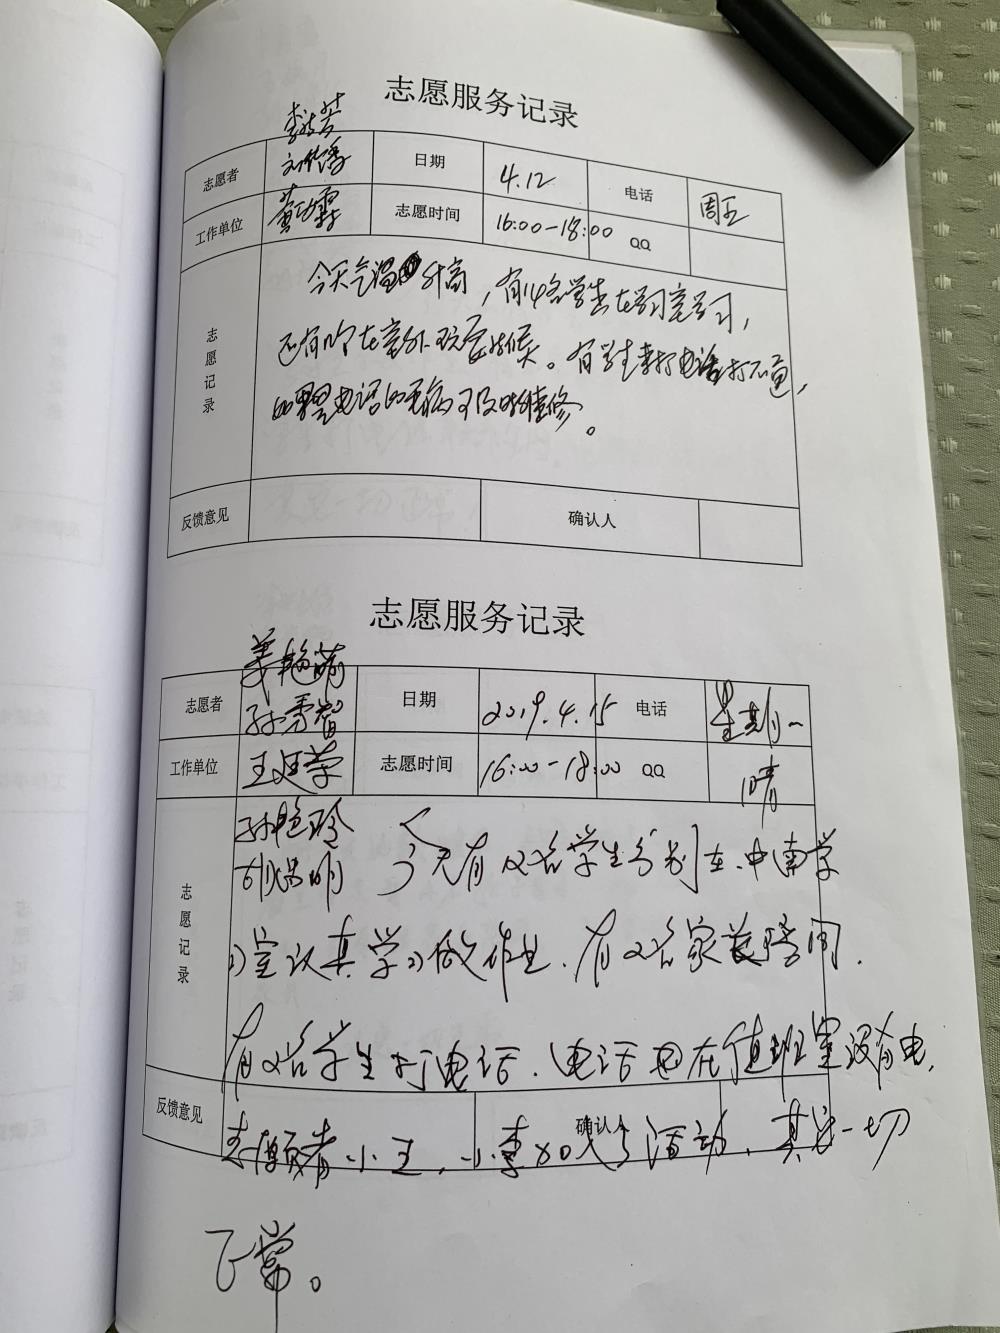 志愿服务记录
志愿者 日期 4.12 电话 周五
工作单位 志愿时间 16:00-18:00 QQ
志愿记录
今天气温升高，有14名学生在学习室学习，
还有几个在室外玩耍。有学生来打电话打不通，
如果电话的毛病可及时维修。
反馈意见 确认人
志愿服务记录
姜艳萍
志愿者 孙秀智 日期 2019.4.15 电话 星期一
工作单位 王廷荣 志愿时间 16:00-18:00 QQ 晴
孙艳玲
志愿记录
今天有2名学生分别在中南学
习室认真学习做作业、有2名家长陪同.
有2名学生打电话.电话也在值班室没有电.
反馈意见 确认人
志愿者小王,小李加入了活动、其它一切
正常。